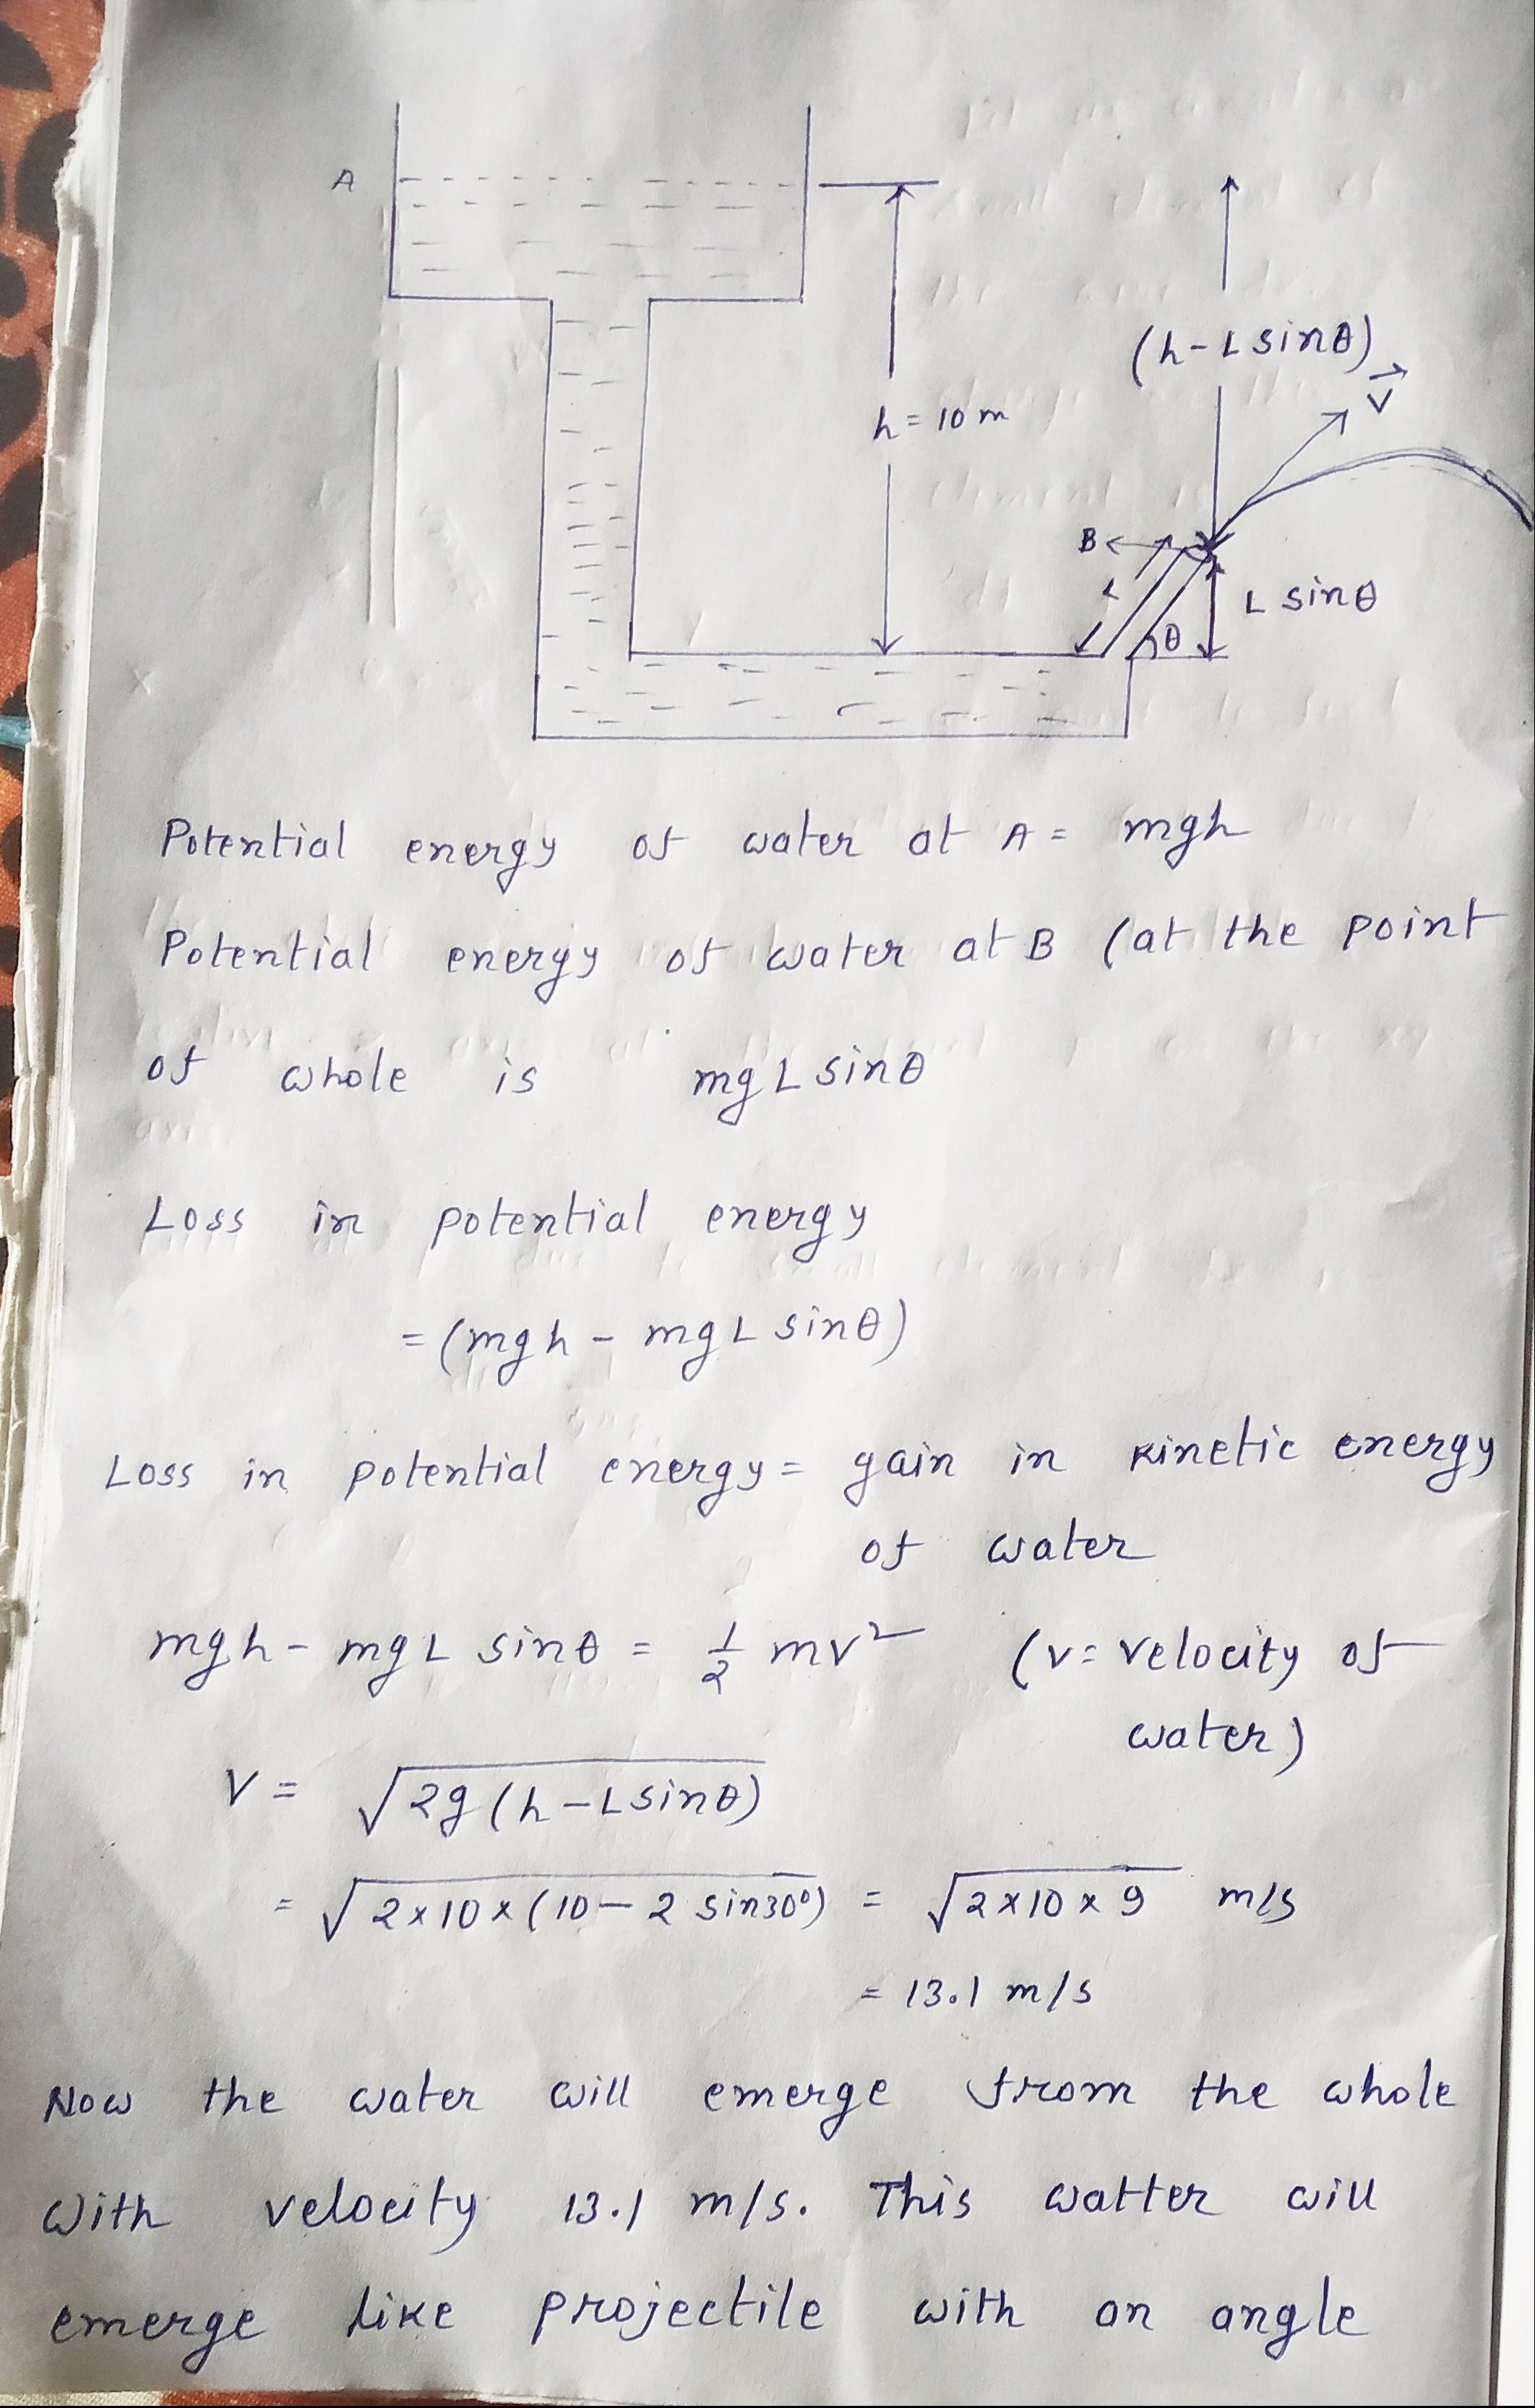 A
(h-L sinθ)
V
h = 10 m
B
L
L sinθ
θ
Potential energy of water at A = mgh
Potential energy of water at B (at the point
of whole is mg L sinθ
Loss in potential energy
= (mgh - mg L sinθ)
Loss in potential energy = gain in kinetic energy
of water
mgh - mgL sinθ = 1/2 mv² (v = velocity of
water)
V = √2g (h - L sinθ)
= √2×10×(10 - 2 sin30°) = √2×10×9 m/s
= 13.1 m/s
Now the water will emerge from the whole
with velocity 13.1 m/s. This watter will
emerge like projectile with an angle